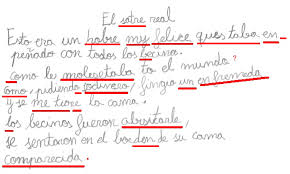 El sotre real
Esto era un hobre my felice ques taba en-
peñado con todos los becinos.
como le molesetaba to el mundo?
Como, pudiendo socunero, fingio un enfremeda
y se me tiore la cama.
los becinos fueron abisitarle,
se sentaron en el bordon de su cama
comparecida.